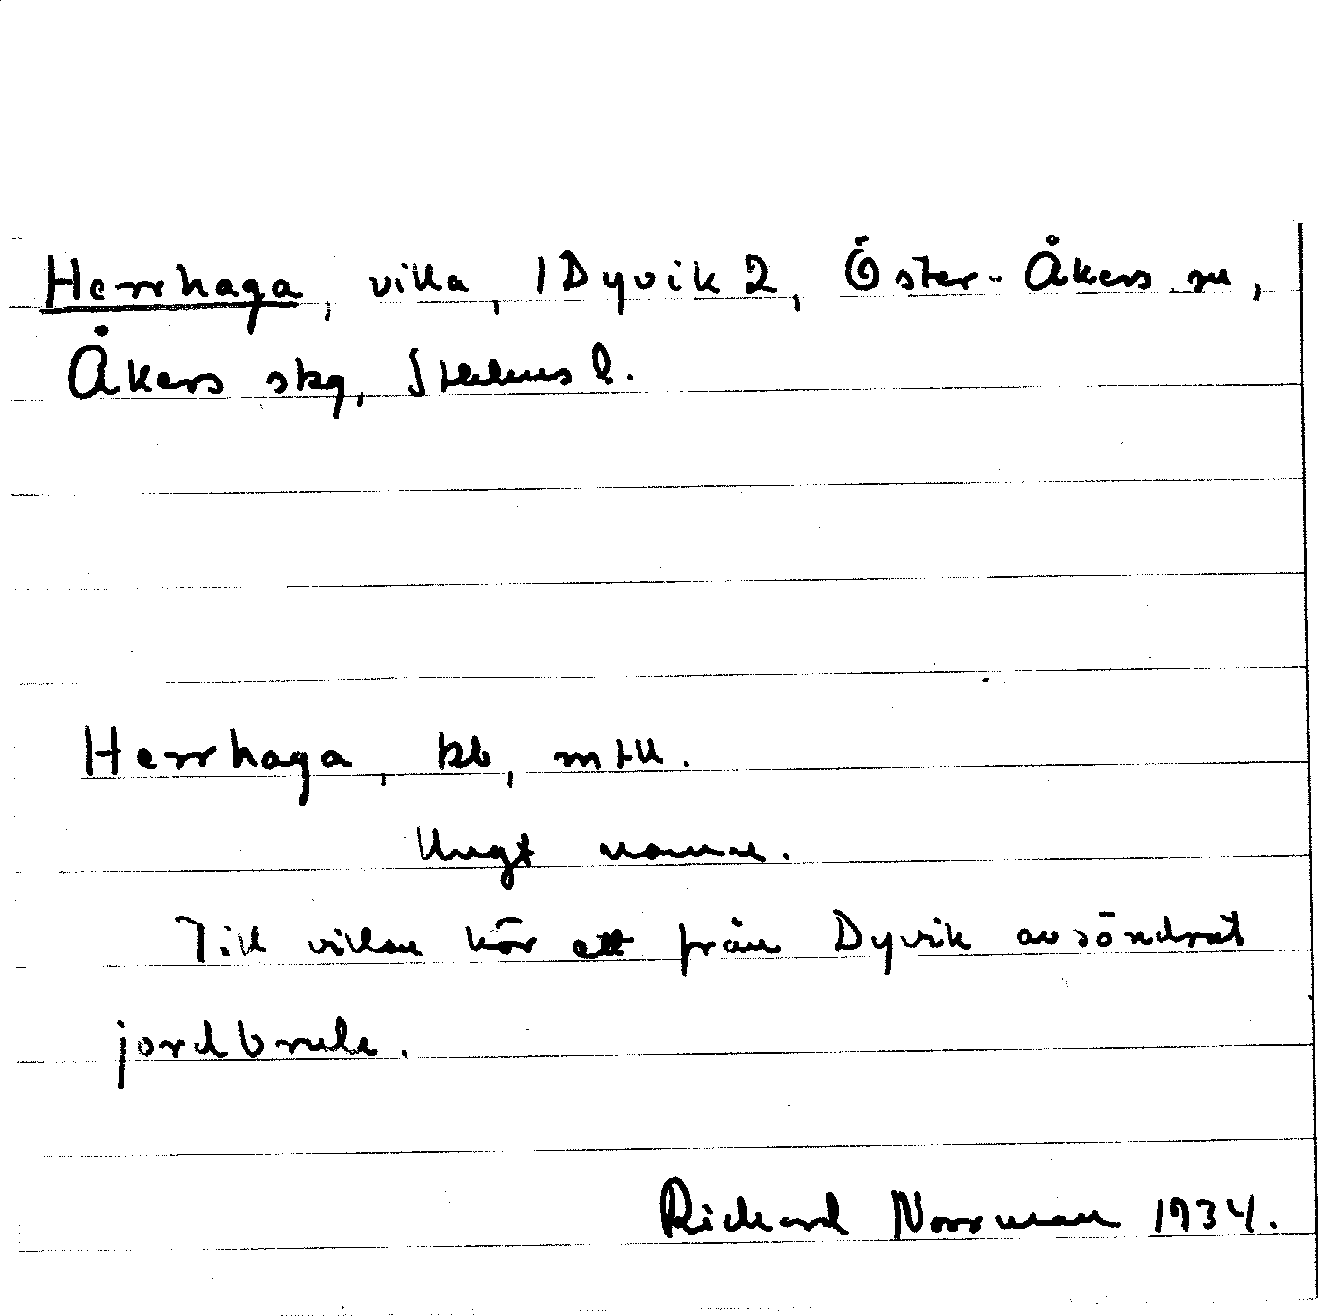 Herrhaga, villa, 1 Dyvik 2, Öster-Åkers sn,
Åkers skg, Sthlms l.
Herrhaga, kb, mtll.
Ungt namn.
Till villan hör ett från Dyvik avsöndrat
jordbruk.
Rickard Norrman 1934.